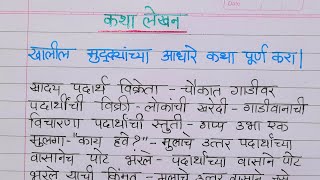 कथा लेखन
खालील मुद्द्यांच्या आधारे कथा पूर्ण करा|
खाद्य पदार्थ विक्रेता - चौकात गाडीवर
पदार्थांची विक्री - लोकांची खरेदी - गाडीवानाची
विचारणा पदार्थाची स्तुती - गप्प उभा एक
मुलगा - "काय हवे?" - मुलाचे उत्तर पदार्थाच्या
वासानेच पोट भरले - पदार्थाच्या वासाने पोट
भरले याची किंमत - मुलाचे उत्तर वासाने